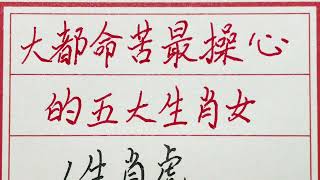 大都命苦最操心
的五大生肖女
1生肖虎